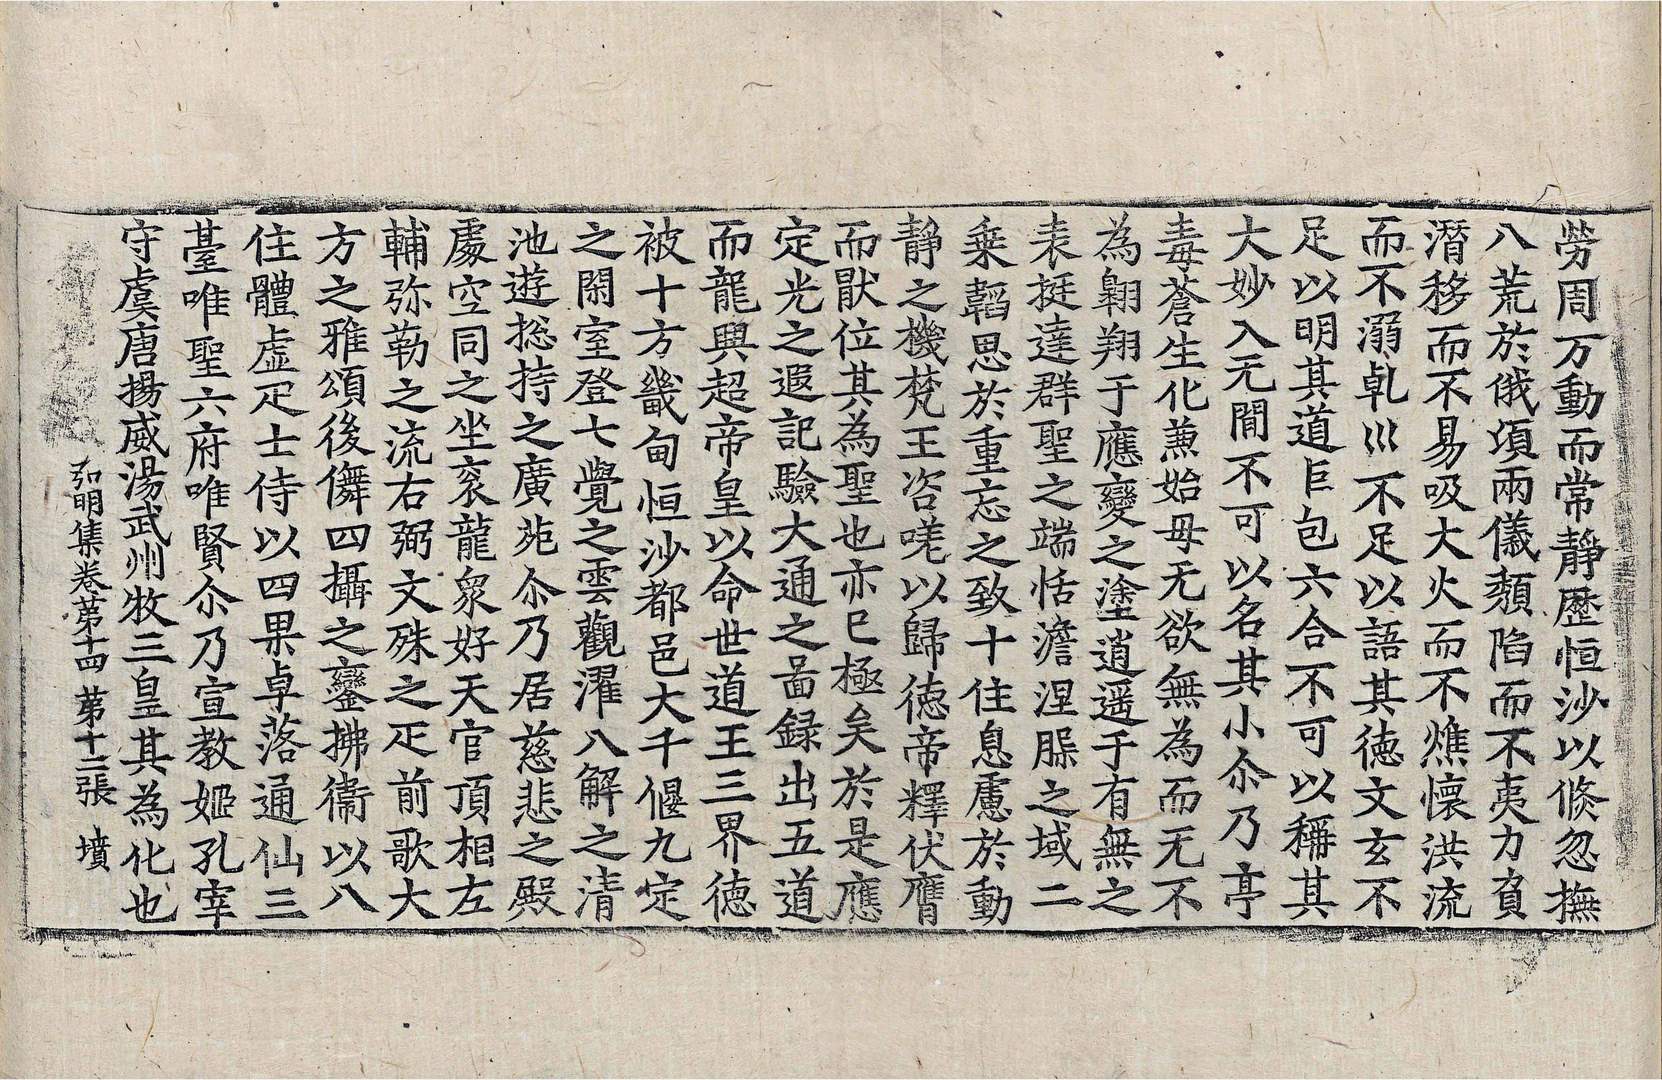 勞周万動而常靜歷恒沙以倏忽撫
八荒於俄頃兩儀頹陷而不夷力負
潛移而不易吸大火而不燋懷洪流
而不溺乹巛不足以語其徳文玄不
足以明其道巨包六合不可以稱其
大妙入无間不可以名其小尒乃亭
毒蒼生化蕪始母无欲無為而无不
為翱翔于應變之塗逍遥于有無之
表挺達群聖之端恬澹涅𦜝之域二
乗韜思於重忘之致十住息慮於動
靜之機梵王咨嗟以歸徳帝釋伏膺
而猒位其為聖也亦已極矣於是應
定光之遐記驗大通之啚録出五道
而龍興超帝皇以命世道王三界徳
被十方畿甸恒沙都邑大千偃九定
之閑室登七覺之雲觀濯八解之清
池遊捴持之廣苑尒乃居慈悲之殿
處空同之坐袞龍衆好天官頂相左
輔弥勒之流右弼文殊之疋前歌大
方之雅頌後儛四攝之鑾拂衞以八
住體虛疋士侍以四果卓落通仙三
臺唯聖六府唯賢尒乃宣教姬孔宰
守虞唐揚威湯武州牧三皇其為化也
弘明集卷第十四 第十二張 墳